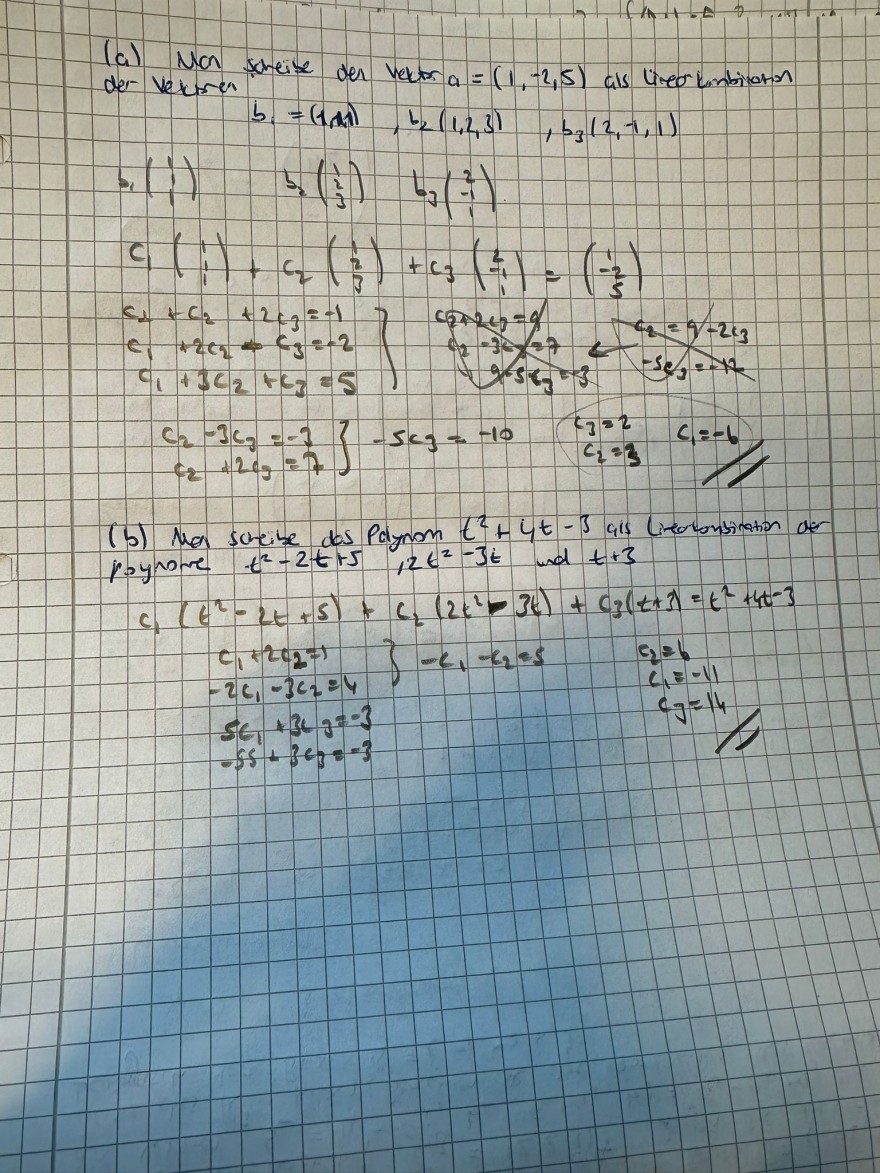 (a) Man screibe den Vektor a = (1,-2,5) als Linearkombination
der Vektoren
b₁ = (1,1,1) , b₂ (1,2,3) , b₃ (2,-1,1)
b₁ (1 1 1) b₂ (1 2 3) b₃ (2 -1 1)
c₁ (1 1 1) + c₂ (1 2 3) + c₃ (2 -1 1) = (1 -2 5)
c₁ + c₂ + 2c₃ = 1
c₁ + 2c₂ - c₃ = -2
c₁ + 3c₂ + c₃ = 5
c₂ - 3c₃ = -3
c₂ + 2c₃ = 7
} -5c₃ = -10
c₃ = 2
c₂ = 3
c₁ = -6
(b) Man screibe das Polynom t² + 4t - 3 als Linearkombination der
Polynome t² - 2t + 5 , 2t² - 3t und t + 3
c₁ (t² - 2t + 5) + c₂ (2t² - 3t) + c₃ (t + 3) = t² + 4t - 3
c₁ + 2c₂ = 1
-2c₁ - 3c₂ = 4
} -c₁ - c₂ = 5
5c₁ + 3c₃ = -3
-55 + 3c₃ = -3
c₂ = 6
c₁ = -11
c₃ = 14